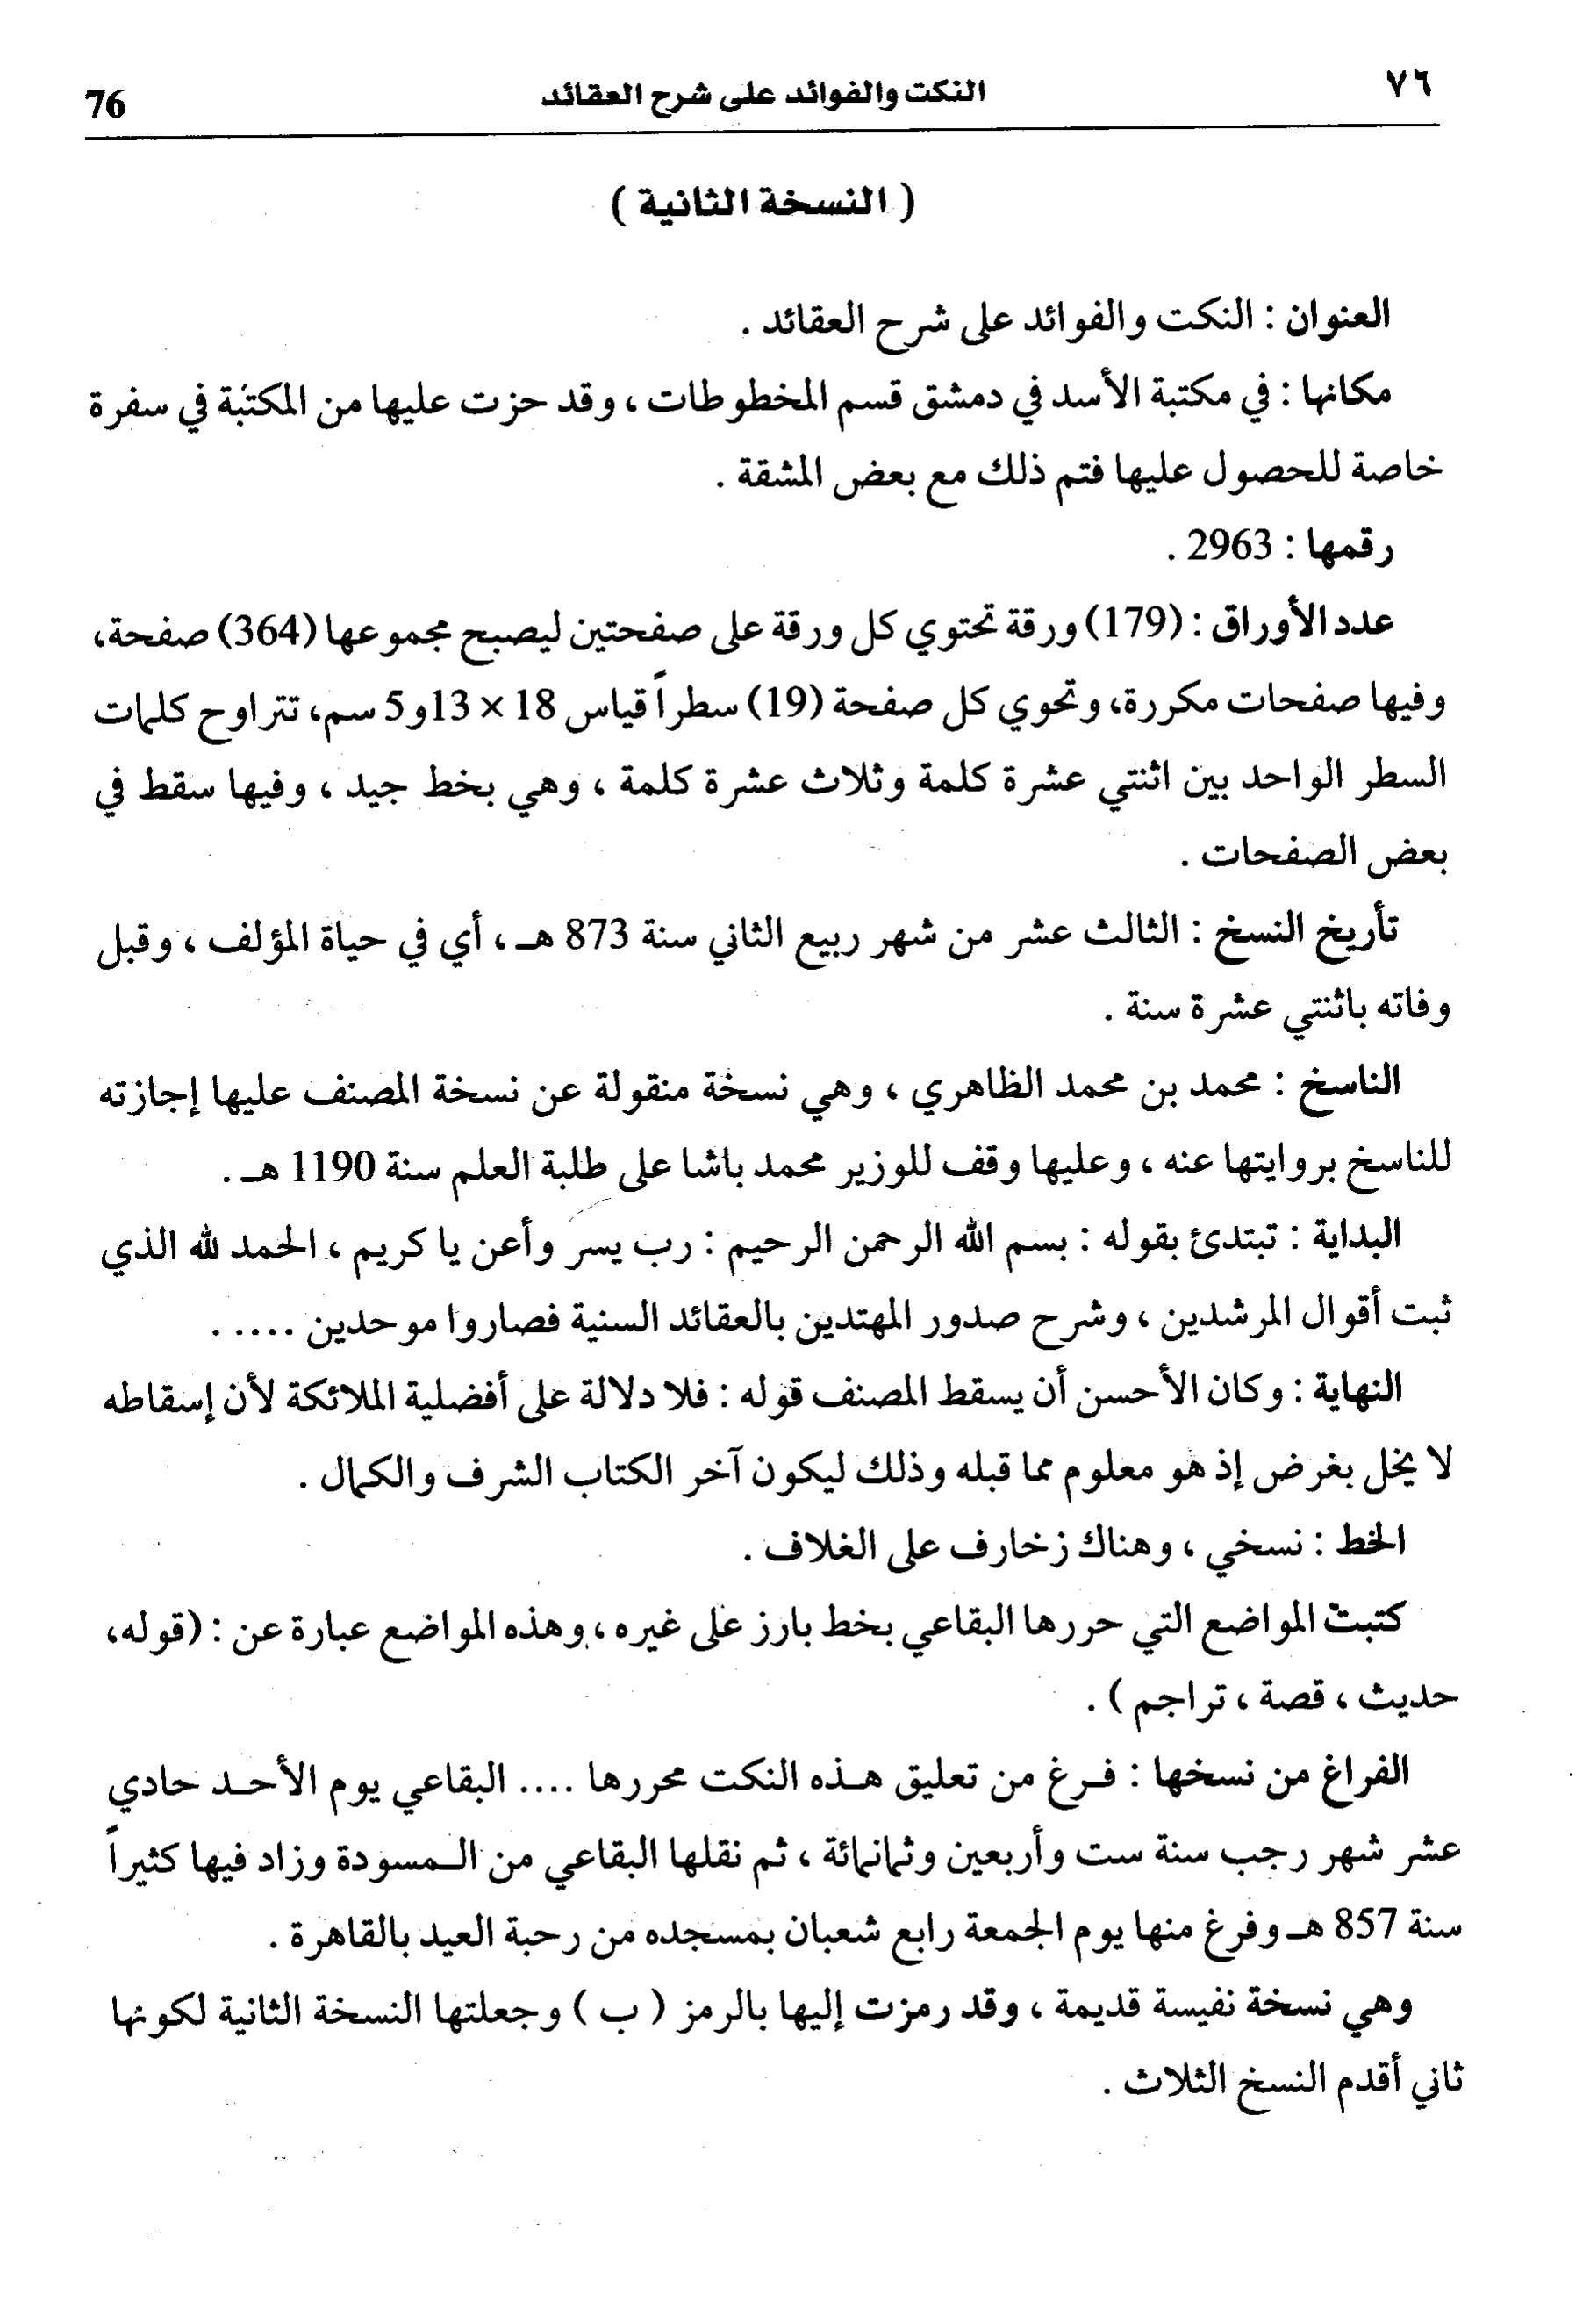 ٧٦
النكت والفوائد على شرح العقائد
76
( النسخة الثانية )
العنوان : النكت والفوائد على شرح العقائد .
مكانها : في مكتبة الأسد في دمشق قسم المخطوطات ، وقد حزت عليها من المكتبة في سفرة
خاصة للحصول عليها فتم ذلك مع بعض المشقة .
رقمها : 2963 .
عدد الأوراق : (179) ورقة تحتوي كل ورقة على صفحتين ليصبح مجموعها (364) صفحة،
وفيها صفحات مكررة، وتحوي كل صفحة (19) سطراً قياس 18 × 13و5 سم، تتراوح كلمات
السطر الواحد بين اثنتي عشرة كلمة وثلاث عشرة كلمة ، وهي بخط جيد ، وفيها سقط في
بعض الصفحات .
تأريخ النسخ : الثالث عشر من شهر ربيع الثاني سنة 873 هـ ، أي في حياة المؤلف ، وقبل
وفاته باثنتي عشرة سنة .
الناسخ : محمد بن محمد الظاهري ، وهي نسخة منقولة عن نسخة المصنف عليها إجازته
للناسخ بروايتها عنه ، وعليها وقف للوزير محمد باشا على طلبة العلم سنة 1190 هـ .
البداية : تبتدئ بقوله : بسم الله الرحمن الرحيم : رب يسر وأعن يا كريم ، الحمد لله الذي
ثبت أقوال المرشدين ، وشرح صدور المهتدين بالعقائد السنية فصاروا موحدين .....
النهاية : وكان الأحسن أن يسقط المصنف قوله : فلا دلالة على أفضلية الملائكة لأن إسقاطه
لا يخل بغرض إذ هو معلوم مما قبله وذلك ليكون آخر الكتاب الشرف والكمال .
الخط : نسخي ، وهناك زخارف على الغلاف .
كتبت المواضع التي حررها البقاعي بخط بارز على غيره ، وهذه المواضع عبارة عن : (قوله،
حديث ، قصة ، تراجم ) .
الفراغ من نسخها : فـرغ من تعليق هـذه النكت محررها .... البقاعي يوم الأحـد حادي
عشر شهر رجب سنة ست وأربعين وثمانمائة ، ثم نقلها البقاعي من الـمسودة وزاد فيها كثيراً
سنة 857 هـ وفرغ منها يوم الجمعة رابع شعبان بمسجده من رحبة العيد بالقاهرة .
وهي نسخة نفيسة قديمة ، وقد رمزت إليها بالرمز ( ب ) وجعلتها النسخة الثانية لكونها
ثاني أقدم النسخ الثلاث .